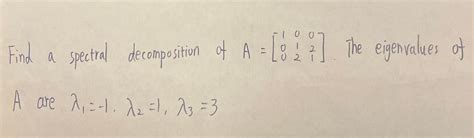 Find a spectral decomposition of A = [1 0 0; 0 1 2; 0 2 1]. The eigenvalues of
A are λ₁=-1. λ₂=1, λ₃=3